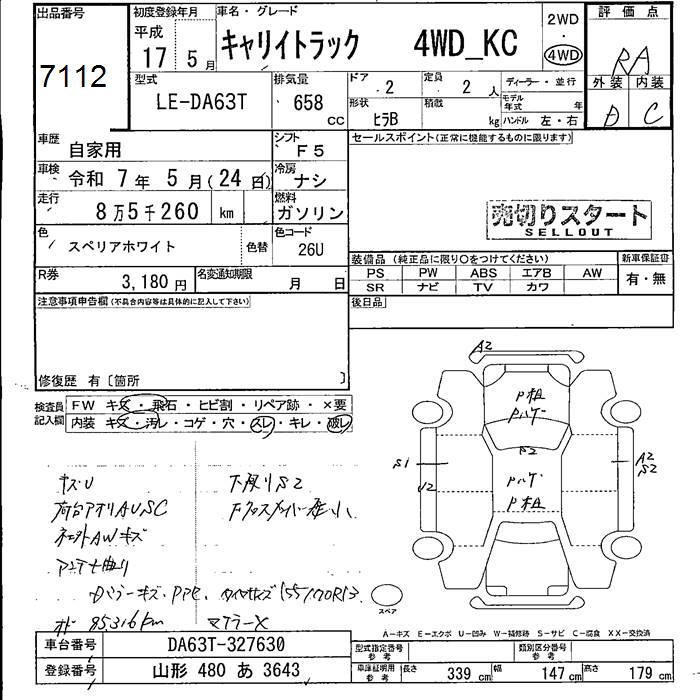 出品番号
7112
初度登録年月
平成
17 年 5 月
車名・グレード
キャリイトラック 4WD_KC
2WD
・
4WD
評 価 点
RA
外装 内装
D C
型式
LE-DA63T
排気量
658
CC
ドア
2
定員
2 人
形状
ヒラB
積載
kg
ディーラー・並行
モデル
年式 年
ハンドル 左・右
車歴
自家用
シフト
F5
車検
令和 7 年 5 月 ( 24 日)
冷房
ナシ
走行
8 万 5 千 260 km
燃料
ガソリン
色
スペリアホワイト
色替
色コード
26U
R券
3,180 円
名変通知期限
月 日
セールスポイント(正常に機能するものに限ります)
売切りスタート
SELLOUT
装備品 (純正品に限り○をつけてください)
PS PW ABS エアB AW
SR ナビ TV カワ
新車保証書
有・無
後日品
注意事項申告欄(不具合内容等は具体的に記入して下さい)
修復歴 有〔箇所 〕
検査員
記入欄
FW キズ・飛石・ヒビ割・リペア跡・×要
内装 キズ・汚レ・コゲ・穴・スレ・キレ・破レ
キズU
荷台アオリAUSC
AWキズ
下廻りS2
下クロスメンバー
タイヤサイズ155/70R13
オド 85316km
マフラーX
A2
P粗
Pハゲ
S2
S1
U2
A2
S2
Pハゲ
P粗
スペア
A−キズ E−エクボ U−凹み W−補修跡 S−サビ C−腐食 XX−交換済
車台番号
DA63T-327630
登録番号
山形 480 あ 3643
型式指定番号
参考
類別区分番号
参考
車庫証明用
参考
長さ 339 cm 幅 147 cm 高さ 179 cm